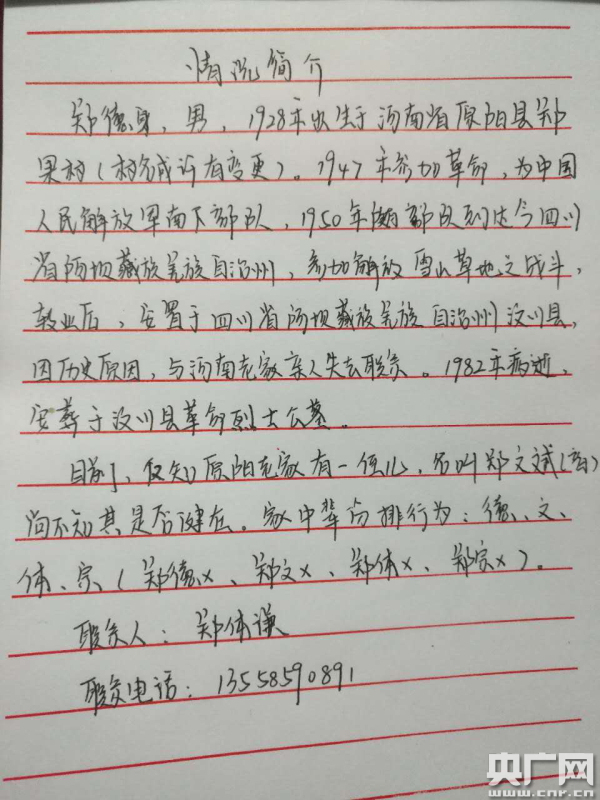 情况简介
郑德身，男，1928年出生于河南省原阳县郑
果村（村名或许有变更）。1947年参加革命，为中国
人民解放军南下部队，1950年随部队到达今四川
省阿坝藏族羌族自治州，参加解放雪山草地之战斗，
转业后，安置于四川省阿坝藏族羌族自治州汶川县，
因历史原因，与河南老家亲人失去联系。1982年病逝，
安葬于汶川县革命烈士公墓。
目前，仅知原阳老家有一侄儿，名叫郑文斌（音）
尚不知其是否健在。家中辈份排行为：德、文、
体、宗（郑德x、郑文x、郑体x、郑宗x）。
联系人：郑体谦
联系电话：13558590891
央广网
www.cnr.cn